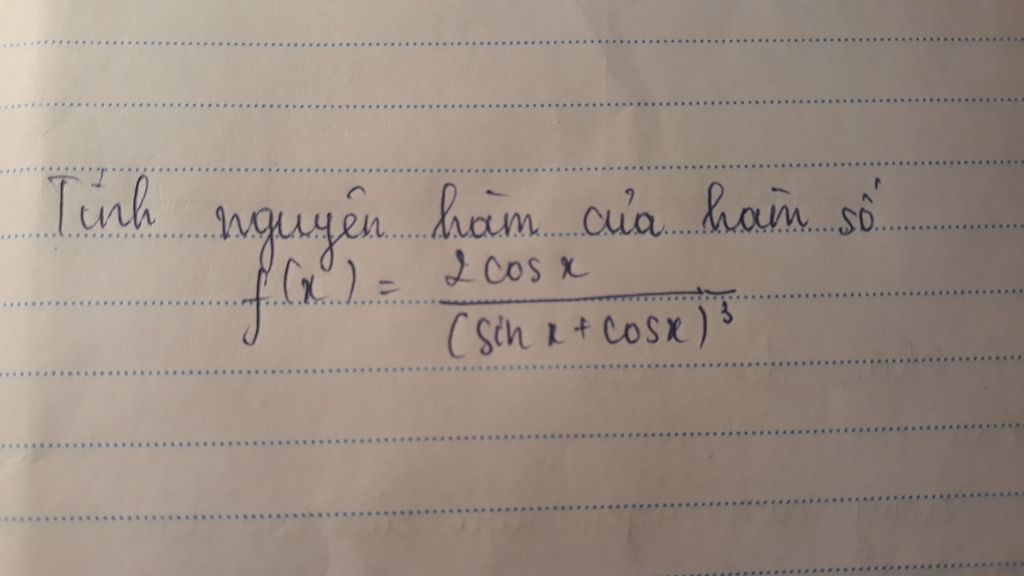 Tính nguyên hàm của hàm số
f(x) = 2 cos x / (sin x + cos x)³